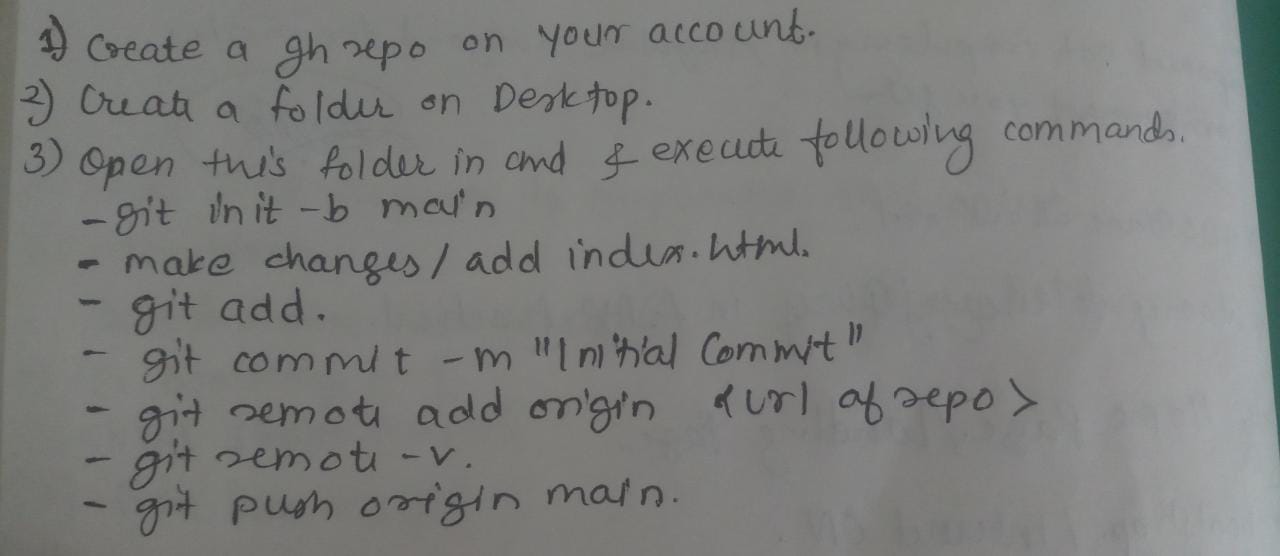 1) Create a gh repo on your account.
2) Create a folder on Desktop.
3) Open this folder in cmd & execute following commands.
- git init -b main
- make changes / add index.html.
- git add .
- git commit -m "Initial Commit"
- git remote add origin <url of repo>
- git remote -v.
- git push origin main.